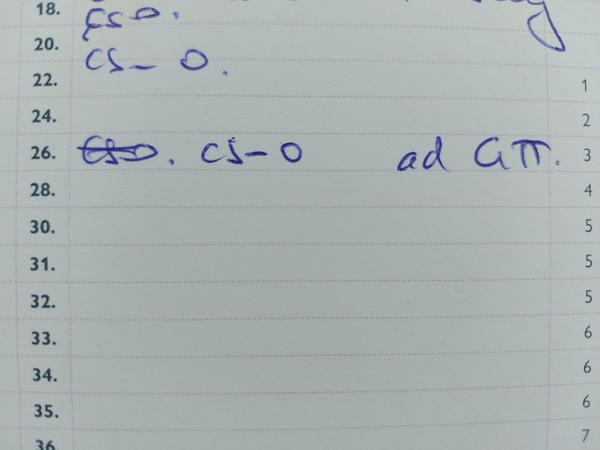 18. CSO.
20. CS-O.
22. 1
24. 2
26. CSO. CS-O ad GTT. 3
28. 4
30. 5
31. 5
32. 5
33. 6
34. 6
35. 6
36. 7